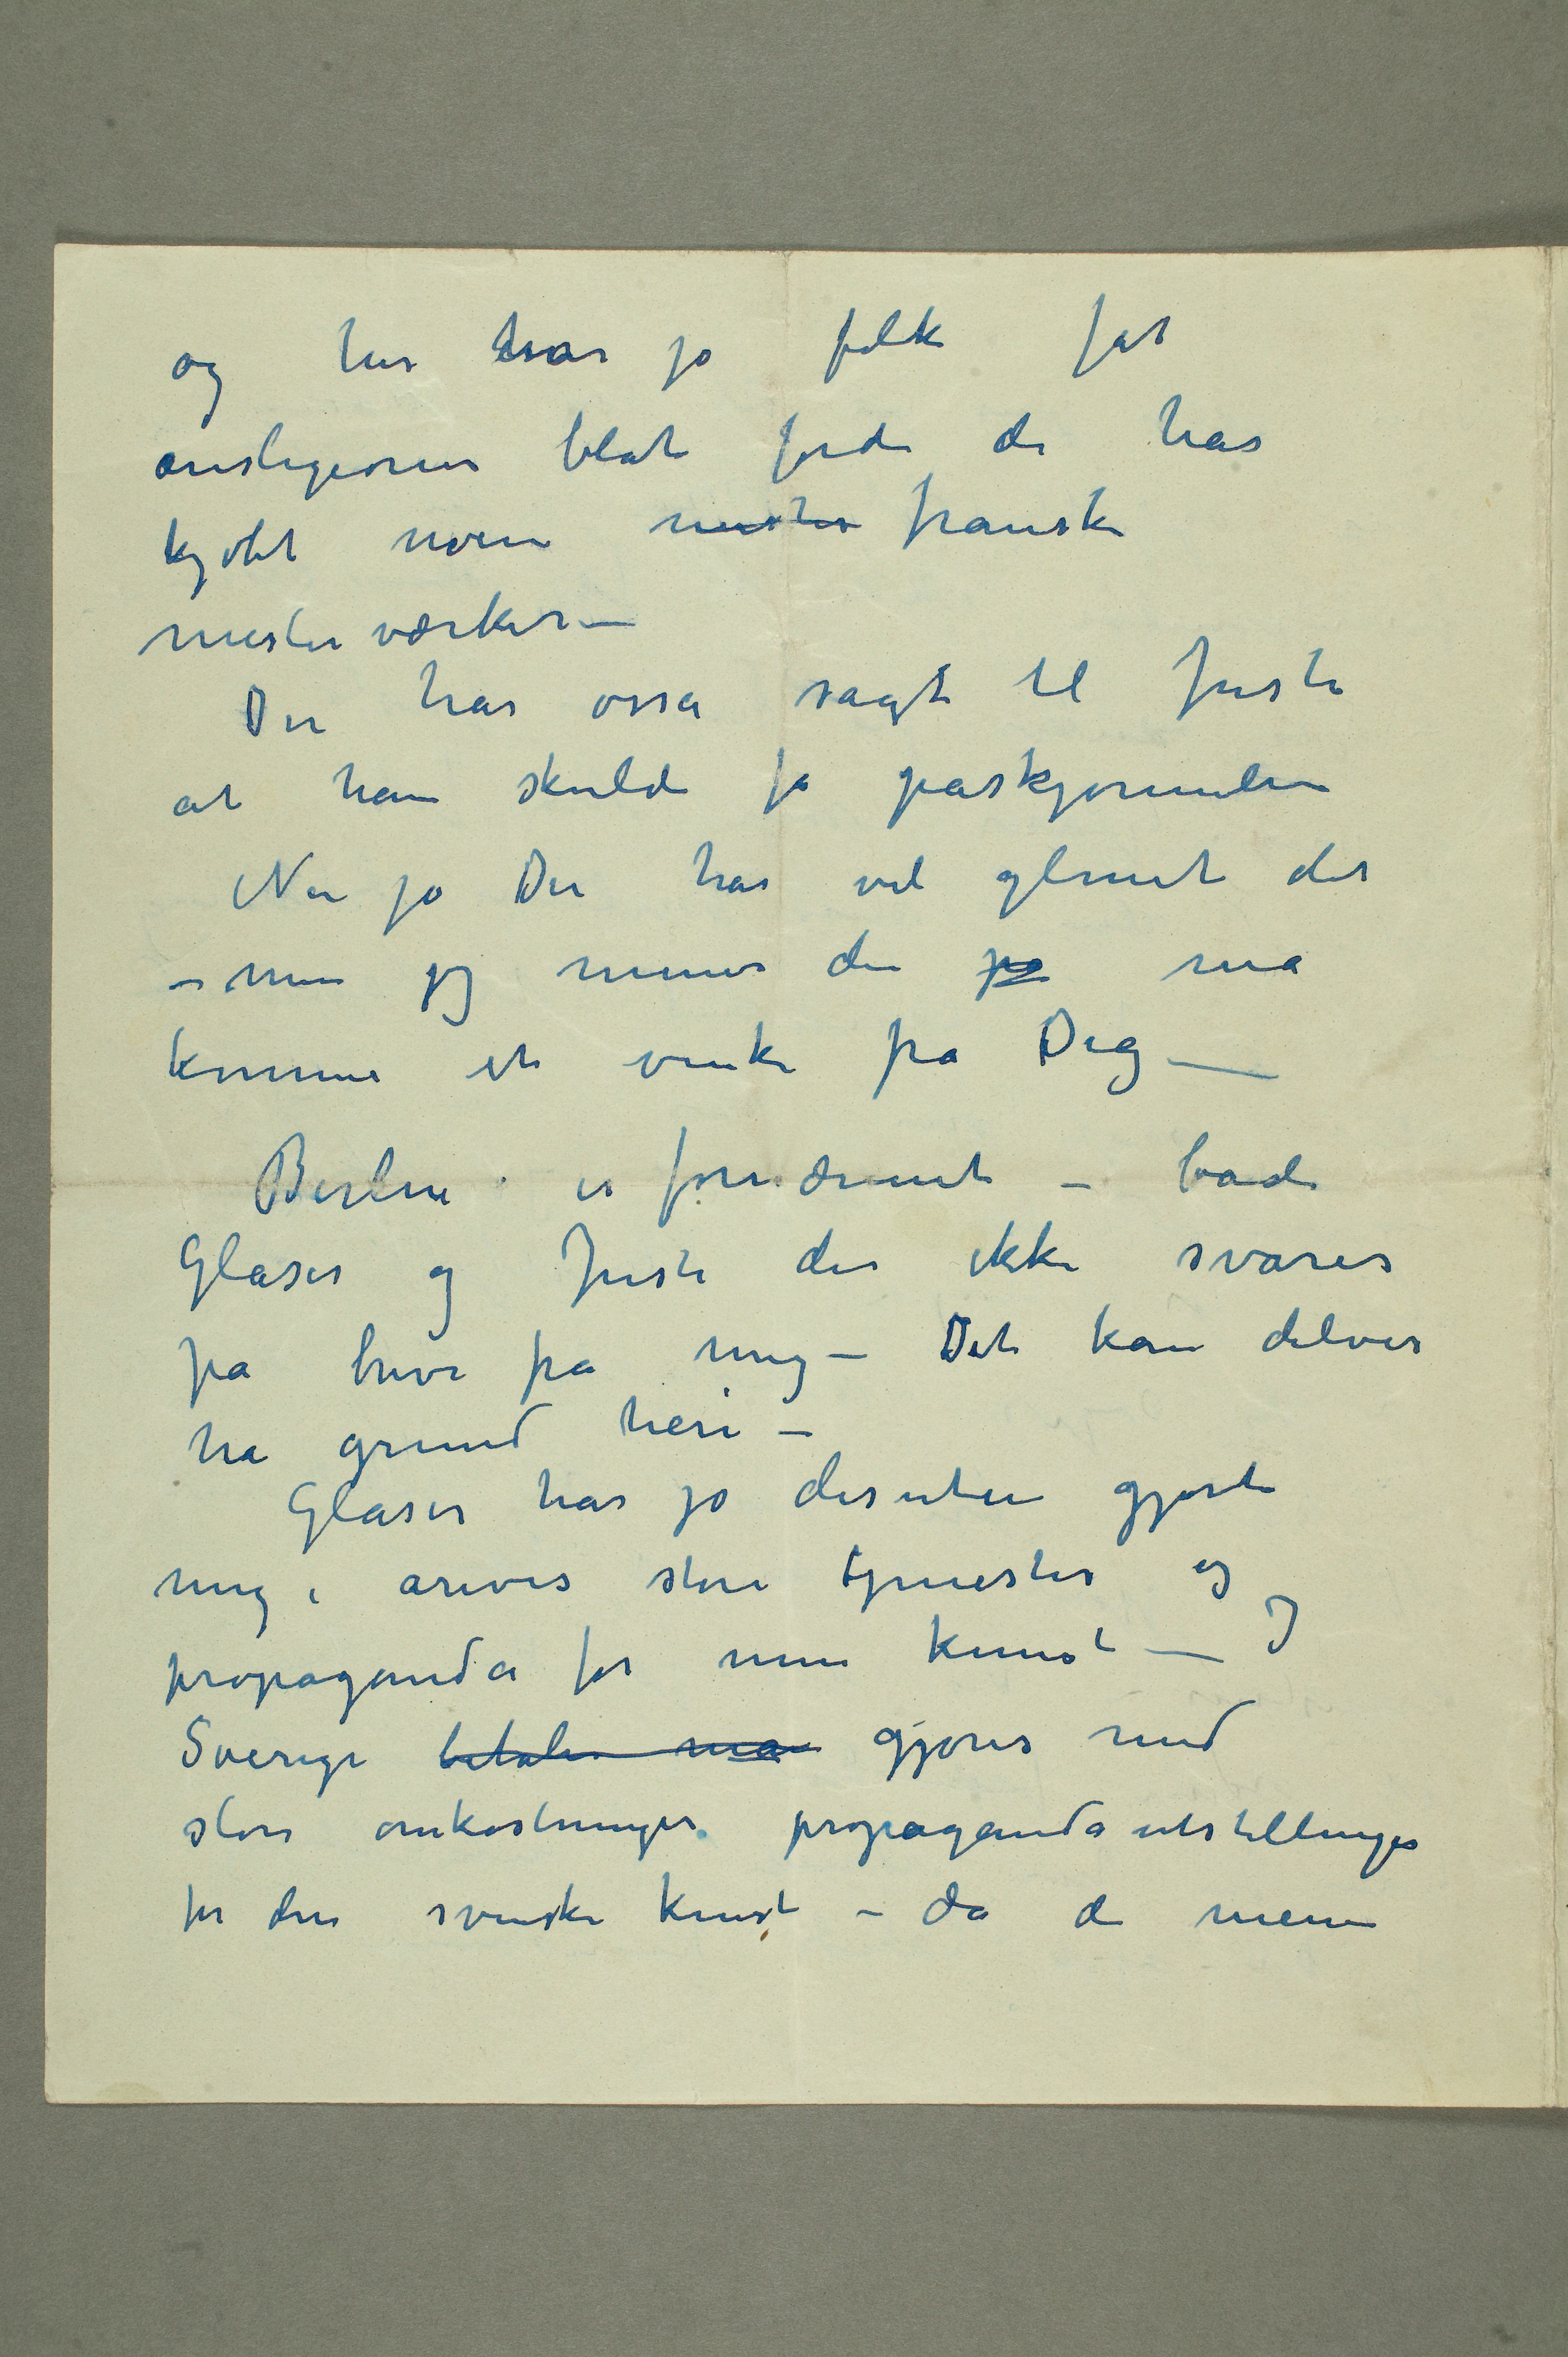 og her har jo folk fåt
æreslegioner blot fordi de har
kjøbt noen mester franske
mesterværker –
Du har osså sagt til Justi
at han skulde få påskjønnelse
Nu ja Du har vel glemt det
– men jeg mener der på må
komme et vink fra Dig –
Berlin er fornærmet – både
Glaser og Justi der ikke svarer
på breve fra mig – Det kan delvis
ha grund heri –
Glaser har jo desuten gjort
mig i årevis store tjenester og
propaganda for min kunst – I
Sverige betaler man gjøres med
store omkostninger propagandautstillinger
for den svenske kunst – da de mener